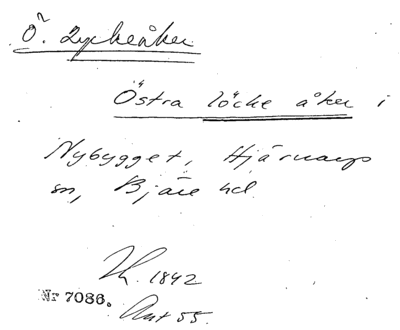 Ö. Lyckeåker
Östra löcke åker i
Nybygget, Hjärnarps
sn, Bjäre hd
1842
Nr 7086. Akt 55.